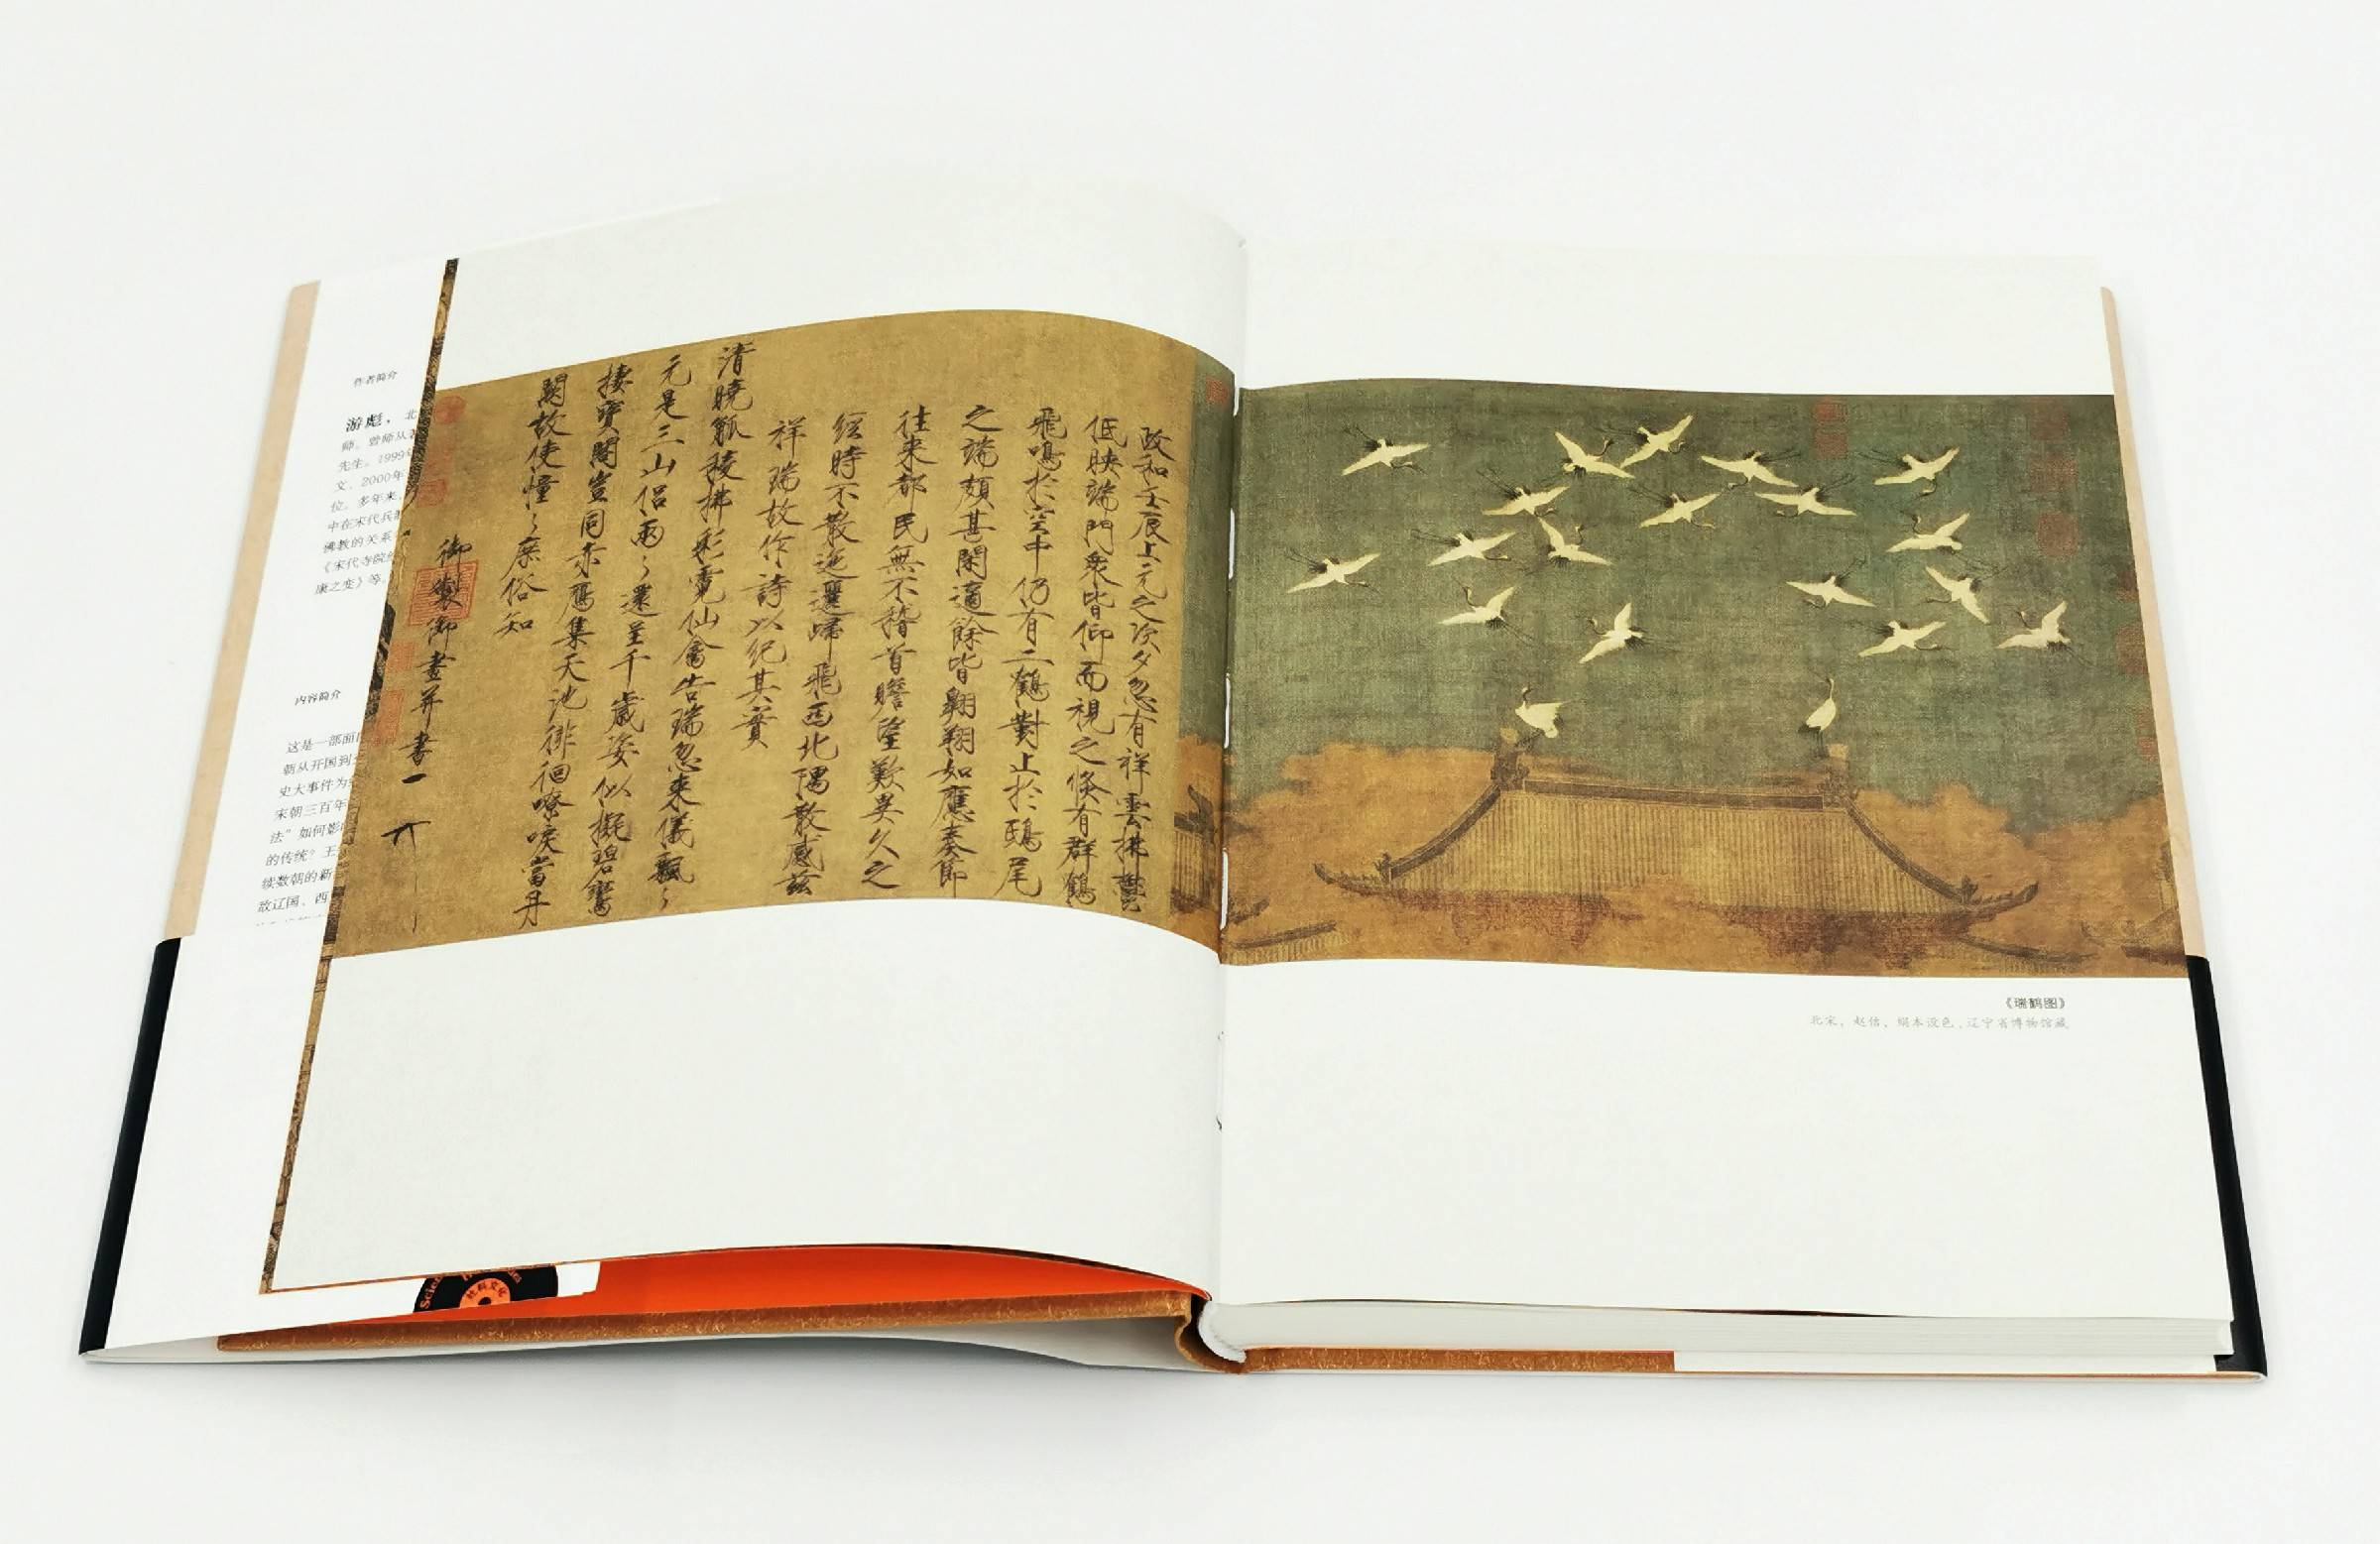 作者简介
游彪，北
师。曾师从
先生。1999
文，2000年
位。多年来，
中在宋代兵
佛教的关系
《宋代寺院
康之变》等。
内容简介
这是一部面
朝从开国到
史大事件为
宋朝三百年
法”如何影
的传统？王
续数朝的新
敌辽国、西
政和壬辰上元之次夕忽有祥雲拂鬱
低映端門衆皆仰而視之倏有群鶴
飛鳴於空中仍有二鶴對止於鴟尾
之端頗甚閑適餘皆翱翔如應奏節
往来都民無不稽首瞻望歎異久之
經時不散迤邐歸飛西北隅散感茲
祥瑞故作詩以紀其實
清曉觚稜拂彩霓仙禽告瑞忽来儀飄〻
元是三山侣兩〻還呈千歲姿似擬碧鸞
棲寳閣豈同赤鴈集天池徘徊嘹唳當丹
闕故使憧〻庶俗知
御製御畫并書
《瑞鹤图》
北宋，赵佶，绢本设色，辽宁省博物馆藏
社科文献